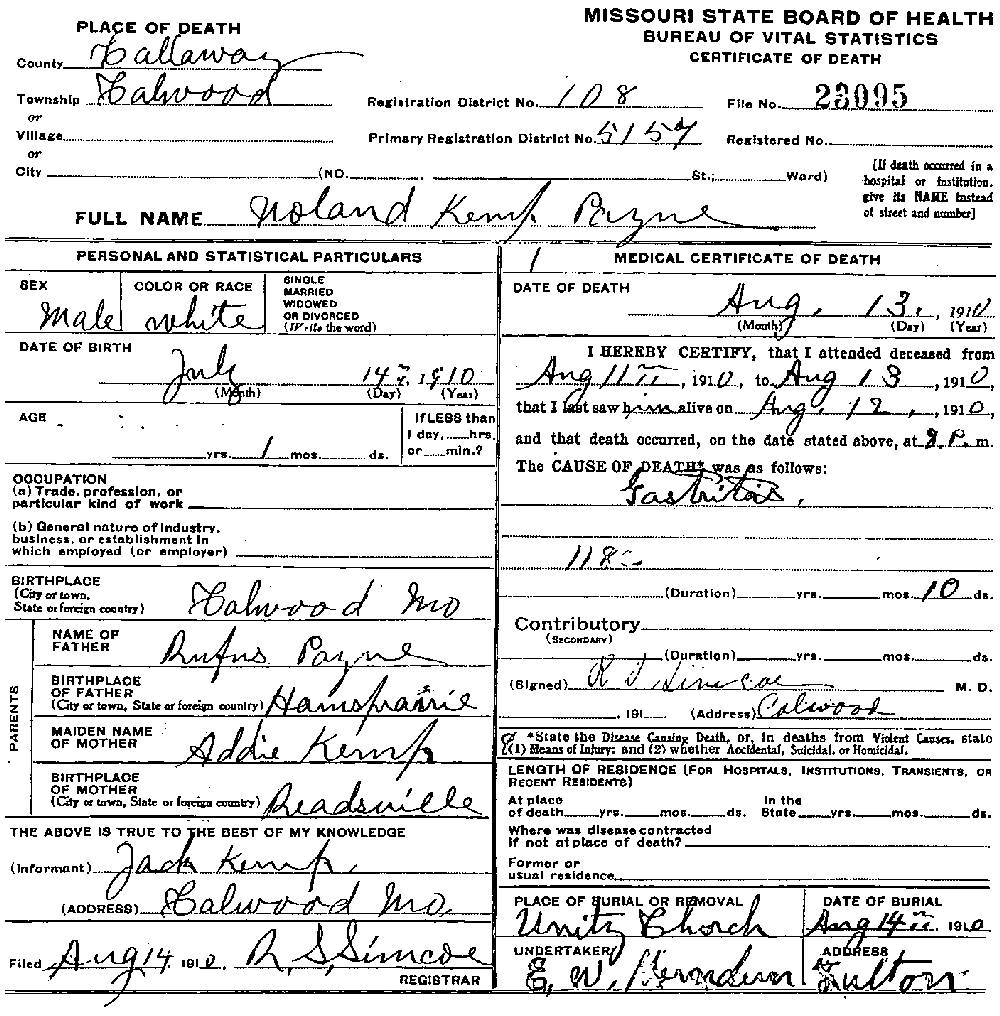 MISSOURI STATE BOARD OF HEALTH
BUREAU OF VITAL STATISTICS
CERTIFICATE OF DEATH
PLACE OF DEATH
County Callaway
Township Calwood
or
Village
or
City (NO. St.; Ward)
Registration District No. 108
File No. 23095
Primary Registration District No. 5157
Registered No.
[If death occurred in a hospital or institution, give its NAME instead of street and number]
FULL NAME Noland Kemp Payne
PERSONAL AND STATISTICAL PARTICULARS
SEX
Male
COLOR OR RACE
white
SINGLE
MARRIED
WIDOWED
OR DIVORCED
(Write the word)
DATE OF BIRTH
July 14th, 1910
(Month) (Day) (Year)
AGE
yrs. 1 mos. ds.
If LESS than
1 day, hrs.
or min.?
OCCUPATION
(a) Trade, profession, or
particular kind of work
(b) General nature of industry,
business, or establishment in
which employed (or employer)
BIRTHPLACE
(City or town,
State or foreign country) Calwood Mo
PARENTS
NAME OF
FATHER Rufus Payne
BIRTHPLACE
OF FATHER
(City or town, State or foreign country) Hamsprairie
MAIDEN NAME
OF MOTHER Addie Kemp
BIRTHPLACE
OF MOTHER
(City or town, State or foreign country) Readsville
THE ABOVE IS TRUE TO THE BEST OF MY KNOWLEDGE
(Informant) Jack Kemp.
(ADDRESS) Calwood Mo.
Filed Aug 14 1910, R. S. Simcoe
REGISTRAR
1 MEDICAL CERTIFICATE OF DEATH
DATE OF DEATH
Aug, 13, 1910
(Month) (Day) (Year)
I HEREBY CERTIFY, that I attended deceased from
Aug 11th, 1910, to Aug 13, 1910,
that I last saw him alive on Aug. 12, 1910,
and that death occurred, on the date stated above, at P. m.
The CAUSE OF DEATH* was as follows:
Gastritis,
118
(Duration) yrs. mos. 10 ds.
Contributory
(SECONDARY)
(Duration) yrs. mos. ds.
(Signed) Simcoe M. D.
, 191 (Address) Calwood
*State the Disease Causing Death, or, in deaths from Violent Causes, state
(1) Means of Injury; and (2) whether Accidental, Suicidal, or Homicidal.
LENGTH OF RESIDENCE (FOR HOSPITALS, INSTITUTIONS, TRANSIENTS, OR
RECENT RESIDENTS)
At place
of death yrs. mos. ds.
In the
State yrs. mos. ds.
Where was disease contracted
if not at place of death?
Former or
usual residence
PLACE OF BURIAL OR REMOVAL
Unity Chorch
DATE OF BURIAL
Aug 14th 1910
UNDERTAKER
E. W. Herndon
ADDRESS
Fulton